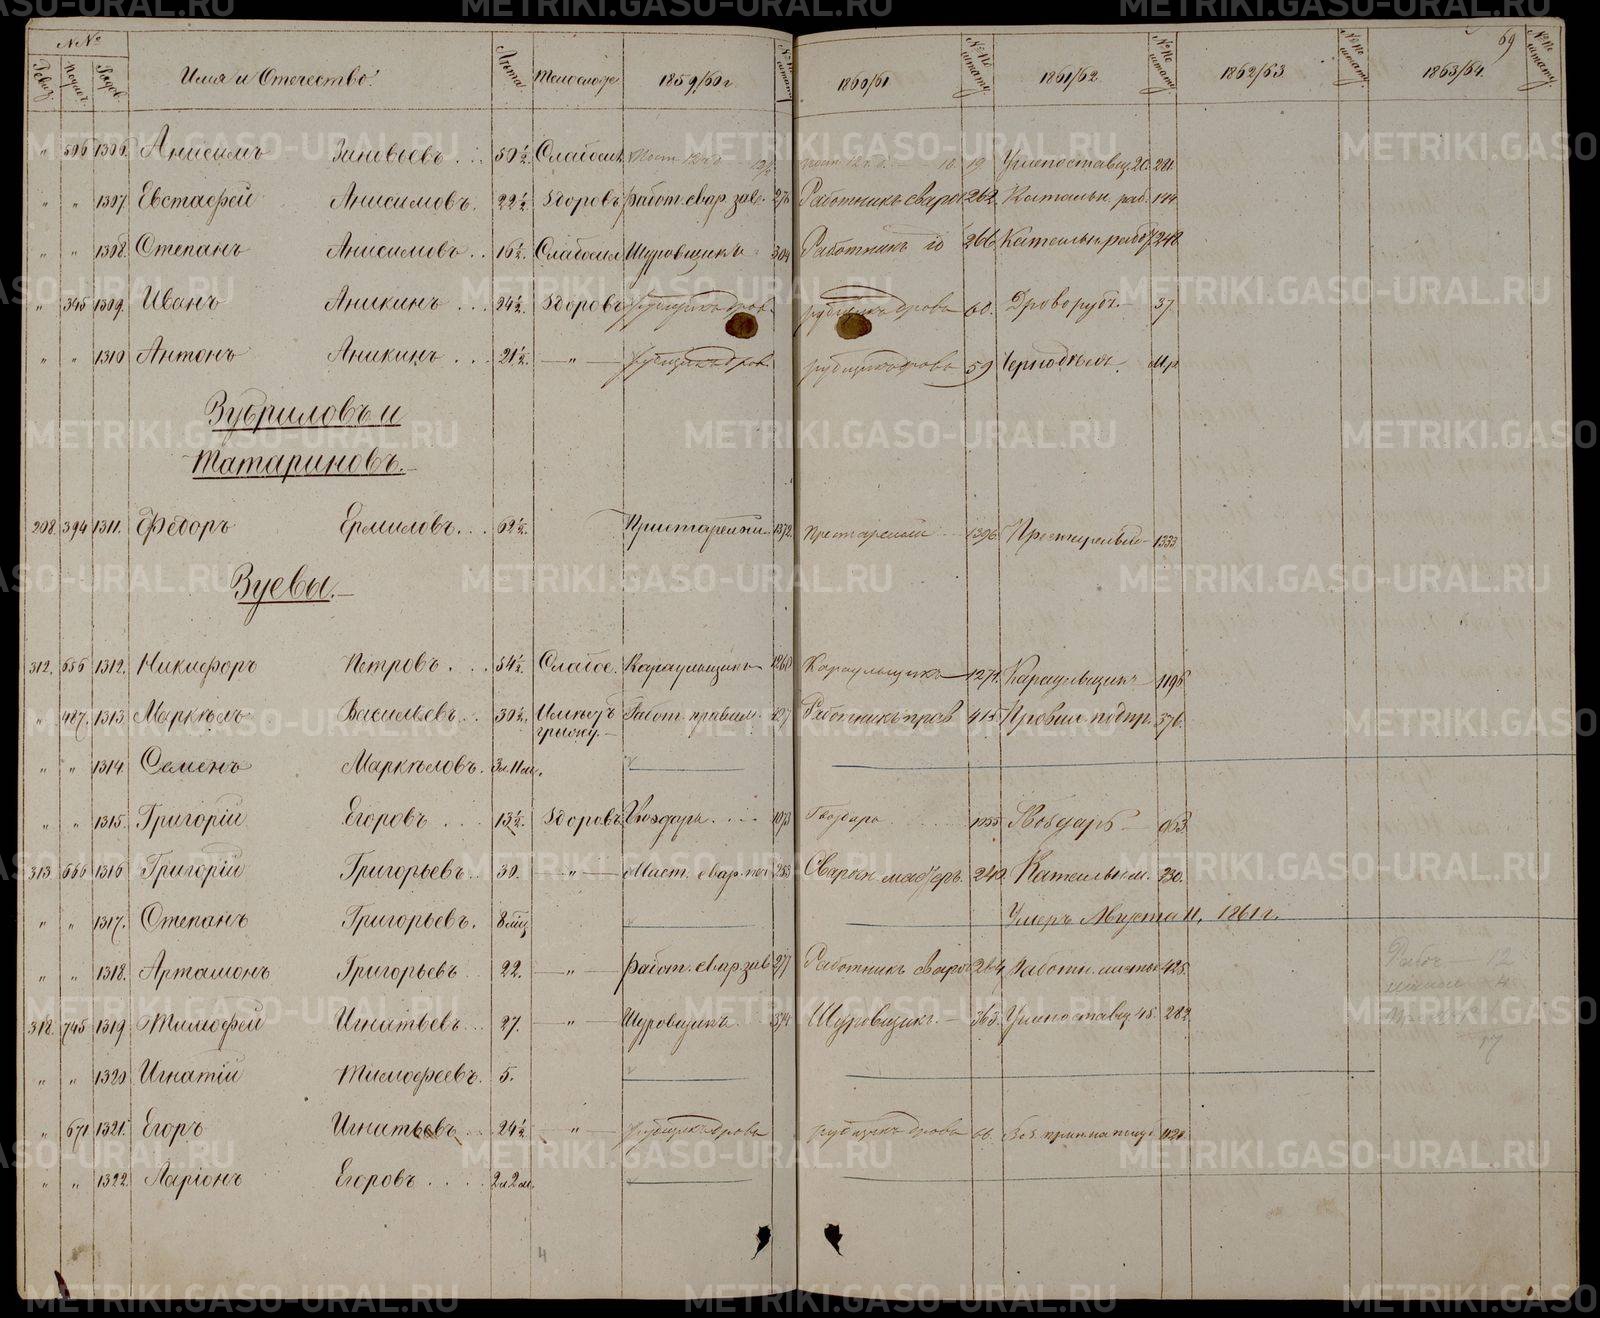 NNо
Ревиз. Подвор. Родов. Имя и Отечество. Лѣта Телослож 1859/60 г №№ по штату 1860/61 №№ по штату 1861/62. №№ по штату 1862/63 №№ по штату 1863/64. №№ по штату
69
„ 506 1306. Анисимъ Зиновьевъ. 50½. Слабосил. 19 Углепоставщ. 20. 281.
„ „ 1307. Евстафей Анисимовъ. 22½. Здоровъ Работ. свар. заве. 276 Работникъ сваро 262. Катальн. раб. 144
„ „ 1308. Степанъ Анисимовъ. 16½. Слабосил Шуровщикъ 304 Работникъ 266. Катальн. рабо 248
„ 345 1309. Иванъ Аникинъ 24½. Здоровъ рубщикъ дров. рубщикъ дровъ 60. Дроворуб. 37.
„ „ 1310 Антонъ Аникинъ 21½. — „ — рубщикъ дров. рубщикъ дровъ 59 Чернодѣл.
Зубриловъ и
Татариновъ.
208. 394 1311. Ѳедоръ Ермиловъ. 62½. Пристарелый. 1372. Престарелый 1396. Престарелый 1333
Зуевы.
312. 656 1312. Никифоръ Петровъ. 54½. Слабос. Караульщикъ 1260 Караульщикъ 1271. Караульщикъ 1195
„ 487. 1313. Маркѣлъ Васильевъ. 30½. Имѣетъ грыжу. Работ. правил. 427 Работникъ прав 415. Правил. подпр. 376.
„ „ 1314. Семенъ Маркѣловъ. 3 л. 11 м.
„ „ 1315. Григорій Егоровъ 13½. Здоровъ. Гвоздарь 1073 Гвоздарь 1155 963
313. 666 1316 Григорій Григорьевъ. 30. — „ — Маст. свар. печ 253 Сварки мастеръ. 240. Катальн. м. 230.
„ „ 1317. Степанъ Григорьевъ. 8 мѣц Умеръ Августа 11, 1861 г.
„ „ 1318. Артамонъ Григорьевъ 22. — „ — Работ. свар. зав 277 Работникъ сваро 264. Работн. 425. Рабоч 12
318. 745 1319 Тимофей Игнатьевъ 27. — „ — Шуровщикъ. 374 Шуровщик. 363. Углепоставщ 45. 282.
„ „ 1320 Игнатій Тимофеевъ. 5.
„ 671 1321. Егоръ Игнатьевъ 24½ — „ — рубщикъ дровъ рубщикъ дровъ 66. 1120
„ „ 1322. Ларіонъ Егоровъ 2 л. 2 м.
4
METRIKI.GASO-URAL.RU